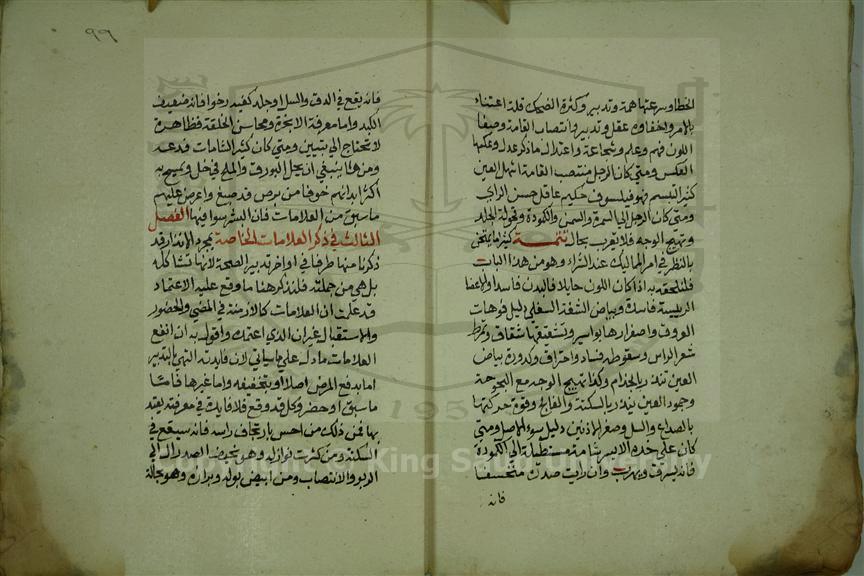 الخطا وسرعتها همة وتدبير وكثرة الضحك قلة اعتناء
بالامر والخفاوه عقل وتدبير وانتصاب القامة وصفا
اللون فهم وعلم وشجاعة واعتدال ماذكر عدل وعكسها
العكس ومتى كان الرجل منتصب القامة اشهل العين
كثير التبسم فهو فيلسوف حكيم عاقل حسن الراي
ومتى كان الرجل الى السمرة والسمن والكمودة وقحولة الجلد
وتهيج الوجه فلا يقرب بحال تتمة كثيرا ما يعتنى
بالنظر في امر المماليك عند الشراء وهو من هذا الباب
فلنلحقه به اذا كان اللون حايلا فالبدن فاسد والاعضا
الرييسة فاسدة وبياض الشفة السفلى دليل فوهات
العروق واصفرارها بواسير وتشققها شقاق وتمرط
شعر الراس وسقوطه فساد واحتراق وكدورة بياض
العين تنذر بالجذام وكذا تهيج الوجه مع البحوحة
وجمود العين ينذر بالسكتة والفالج وقوة حركتها
بالصداع والسل وصغر الاذنين دليل سوء الاصل ومتى
كان على خده الايسر شامة مستطيلة الى الكمودة
فانه يسرق ويهرب وان رايت صدره منخسفا
فانه
٩٩
فانه يقع في الدق والسل او جلد كفيه رخوا فانه ضعيف
الكبد واما معرفة الابخرة ومحاسن الخلقة فظاهرة
لا تحتاج الى تبيين ومتى كان كثير الشامات فدعه
ومن هنا ينبغي ان يحل البورق والملح في خل ويمسح به
اكثر ابدانهم خوفا من برص قد صبغ واعرض عليهم
ماسبق من العلامات فان البشر سوا فيها الفصل
الثالث في ذكر العلامات الخاصة بمجرد الانذار قد
ذكرنا منها طرفا في اواخر تدبير الصحة لانها تشاكله
بل هي من جملته فلنذكر هنا ما وقع عليه الاعتماد
قد علمت ان العلامات كالازمنة في المضي والحضور
والاستقبال غير ان الذي اعتمده واقول به ان انفع
العلامات مادل على ماسياتي لان فايدته التهيي بالتدبير
اما بدفع المرض اصلا او بتخفيفه واما غيرها فاما
ماسبق او حضر وكل قد وقع فلا فايدة في معرفته يعتد
بها فمن ذلك من احس بارتجاف راسه فانه سيقع في
السكتة ومن كثرت نوازله وهو منخفض الصدر ال الى
الربو والانتصاب ومن ابيض بوله وبرازه وهو بحالة
Copyright © King Saud University
195